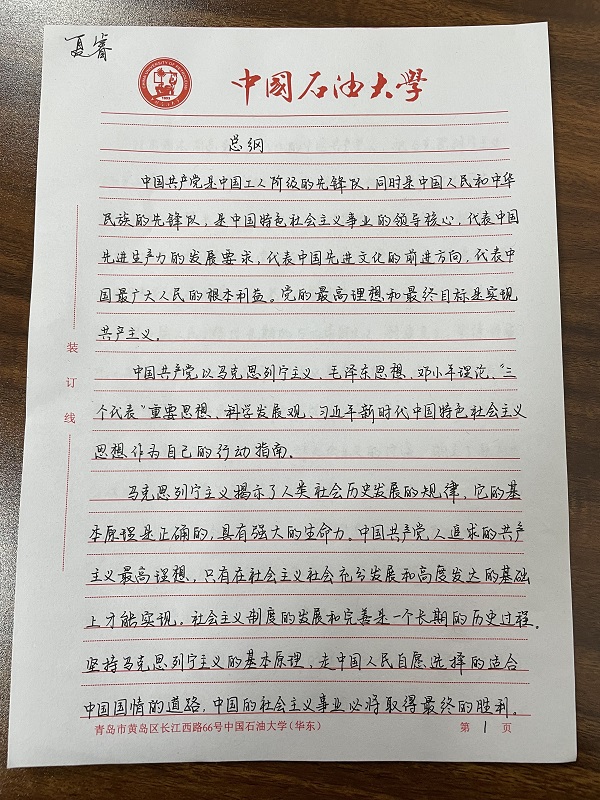 夏睿
中国石油大学
总纲
中国共产党是中国工人阶级的先锋队，同时是中国人民和中华
民族的先锋队，是中国特色社会主义事业的领导核心，代表中国
先进生产力的发展要求，代表中国先进文化的前进方向，代表中
国最广大人民的根本利益。党的最高理想和最终目标是实现
共产主义。
中国共产党以马克思列宁主义、毛泽东思想、邓小平理论、“三
个代表”重要思想、科学发展观、习近平新时代中国特色社会主义
思想作为自己的行动指南。
马克思列宁主义揭示了人类社会历史发展的规律，它的基
本原理是正确的，具有强大的生命力。中国共产党人追求的共产
主义最高理想，只有在社会主义社会充分发展和高度发达的基础
上才能实现。社会主义制度的发展和完善是一个长期的历史过程。
坚持马克思列宁主义的基本原理，走中国人民自愿选择的适合
中国国情的道路，中国的社会主义事业必将取得最终的胜利。
装订线
青岛市黄岛区长江西路66号中国石油大学（华东）
第 1 页